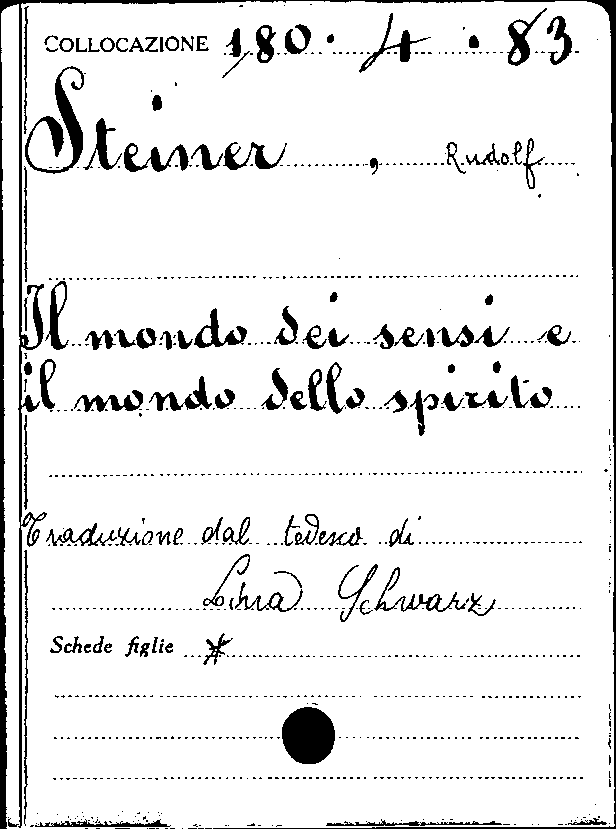 COLLOCAZIONE 180 · 4 · 83
Steiner , Rudolf
Il mondo dei sensi e
il mondo dello spirito
Traduzione dal tedesco di
Schwarz
Schede figlie *